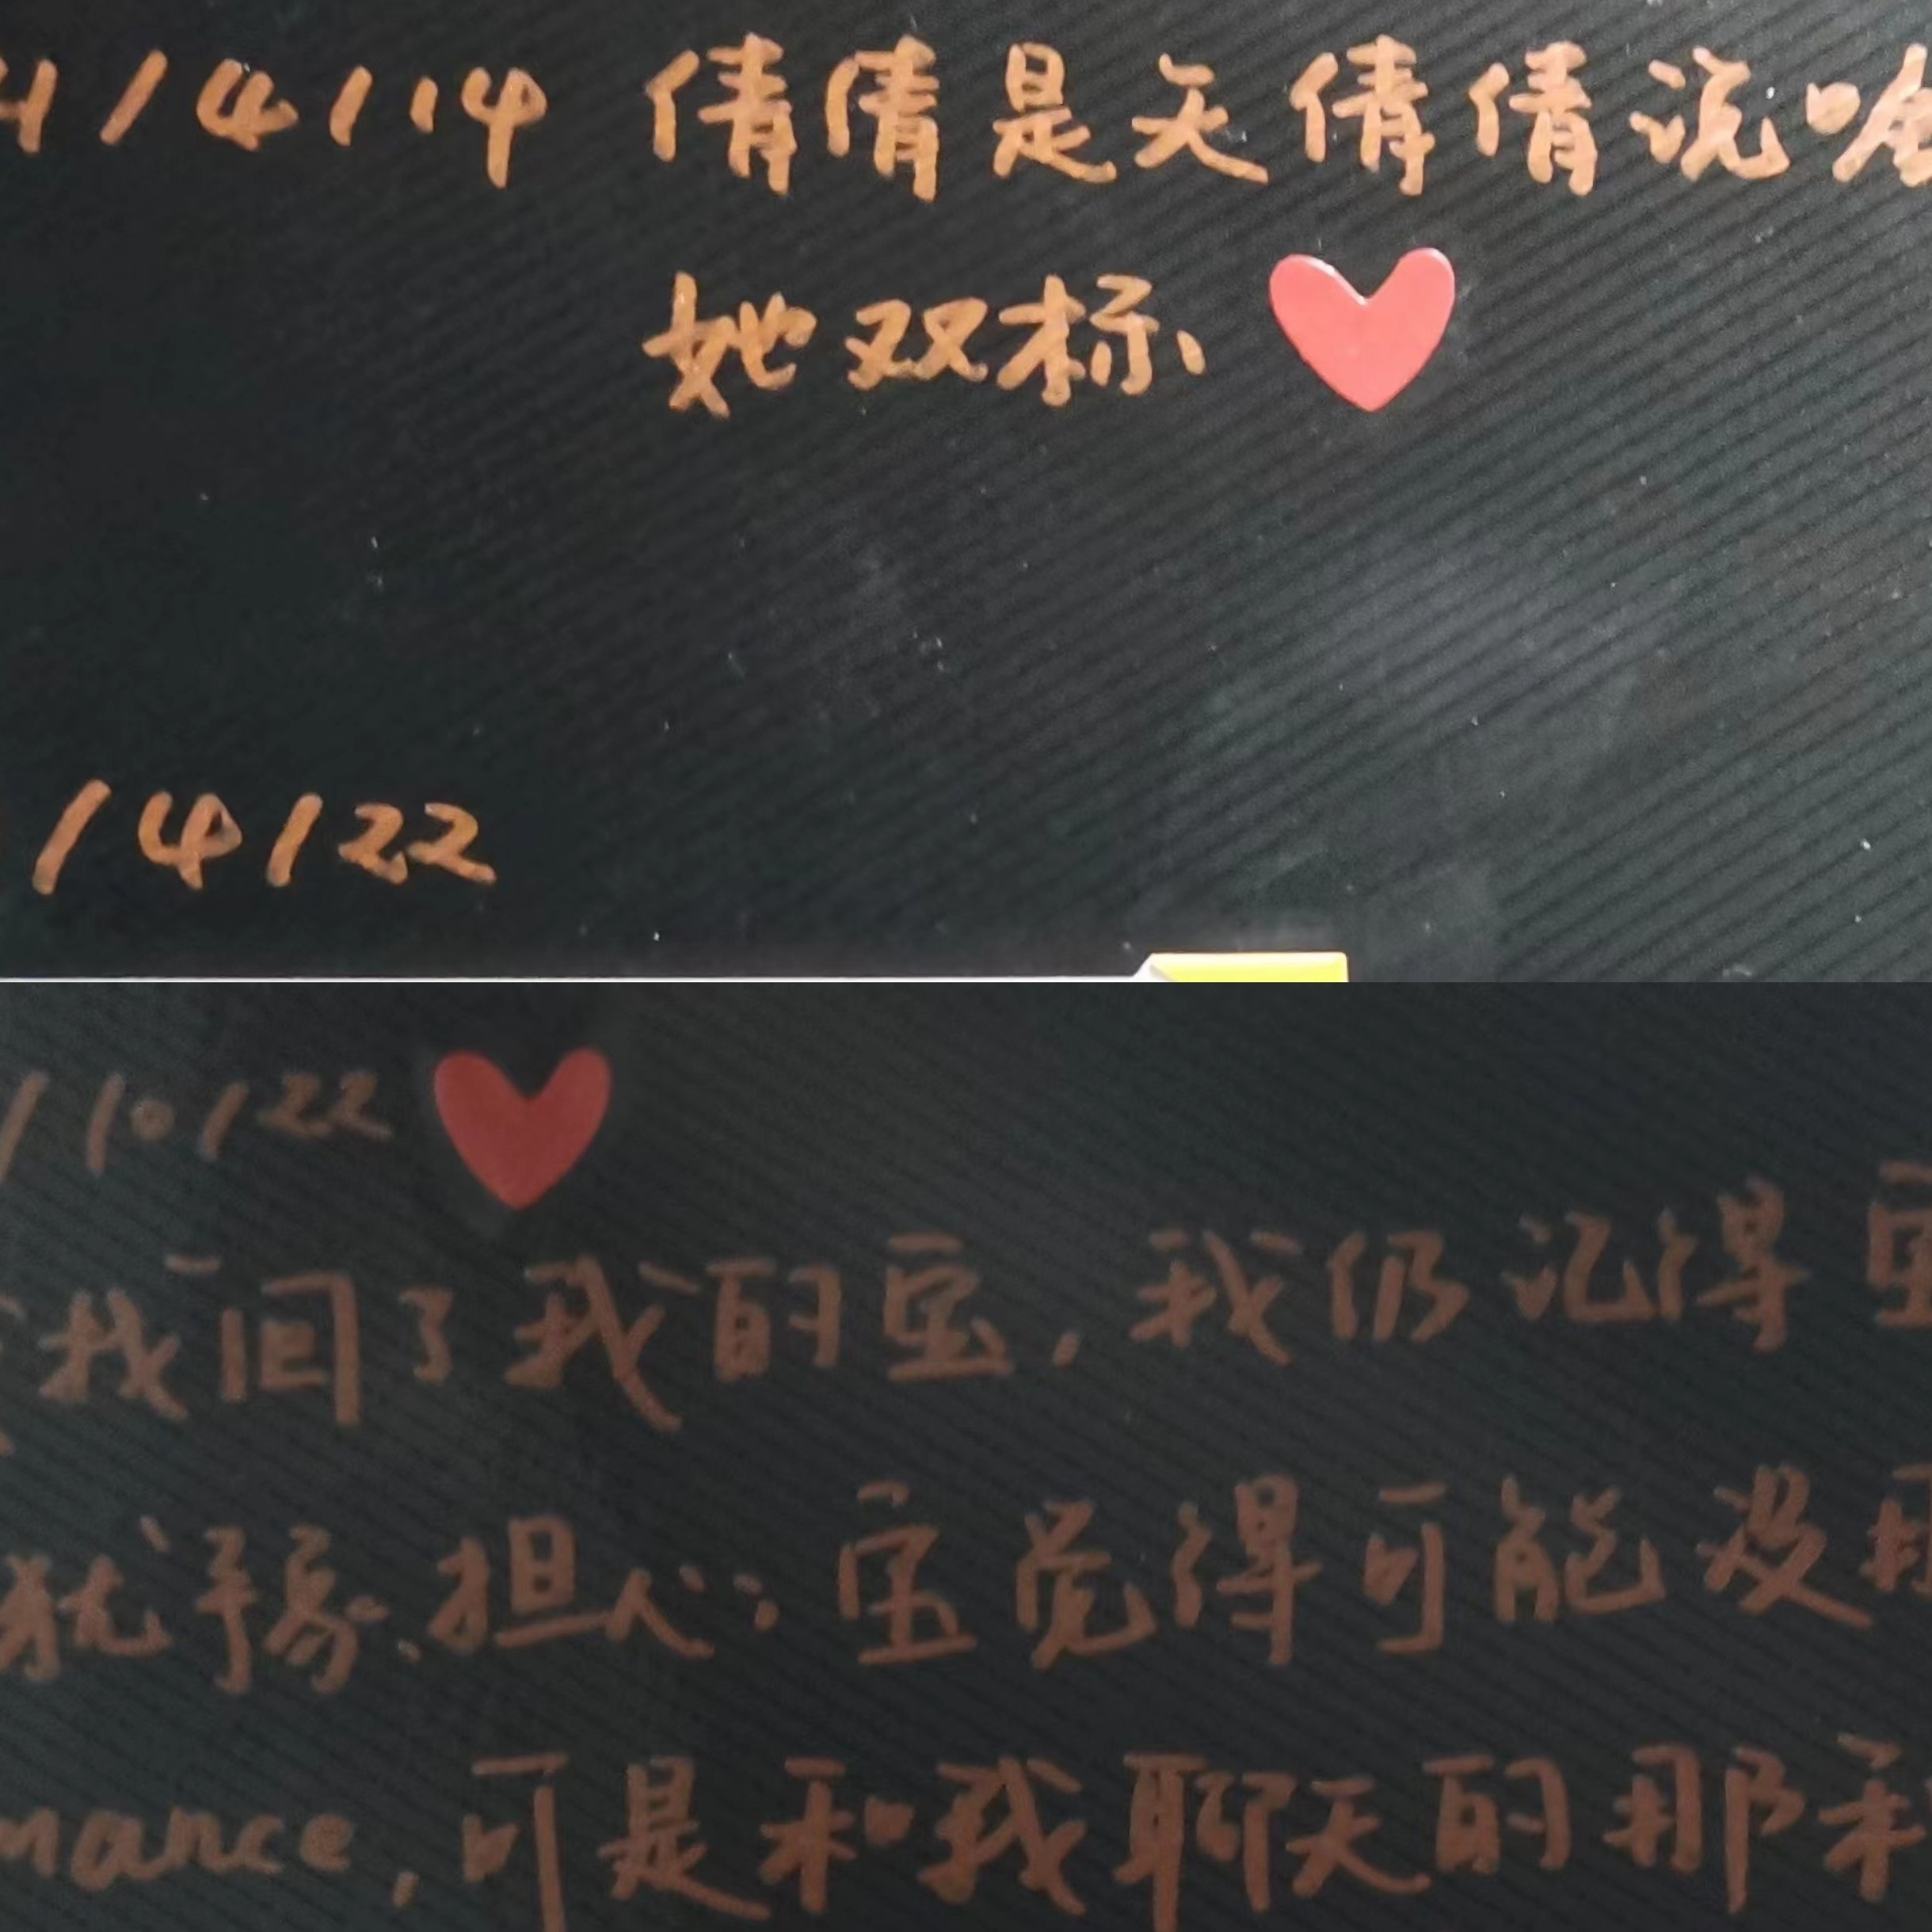 4/4/14 倩倩是天倩倩说啥
她双标、
/4/22
/10/22
我问了我的宝,我仍记得宝
犹豫、担心:宝觉得可能没
mance,可是和我聊天的那